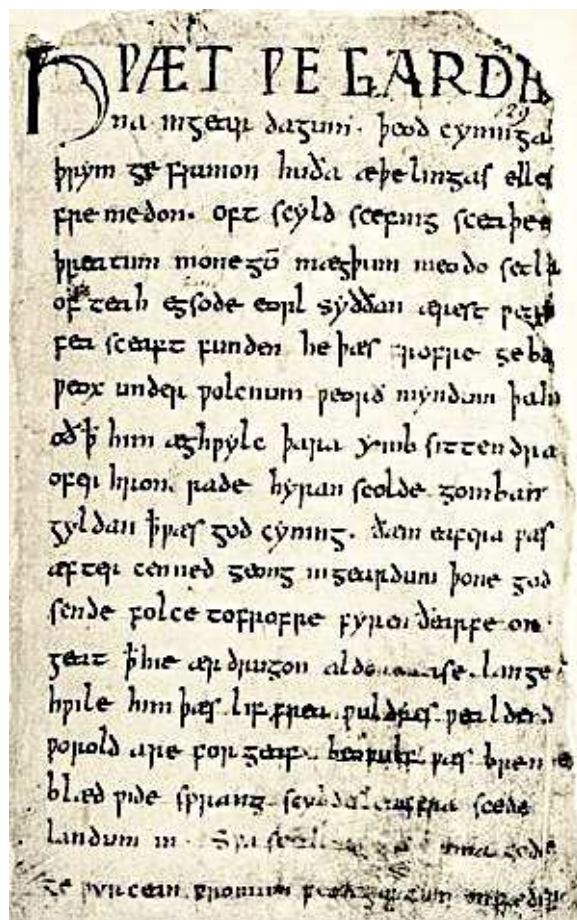 HǷÆT ǷE GARDE
129
na ingear dagum. þeod cyninga
þrym ge frunon huða æþelingas elle
fre medon. oft scyld scefing sceaþe
þreatum monegū mægþum meodo setla
of teah egsode eorl syððan ærest ƿear
fea sceaft funden he þæs frofre geba
ƿeox under ƿolcnum ƿeorð myndum þah
oð ꝥ him æghƿylc þara ymb sittendra
ofer hron rade hyran scolde gomban
gyldan ꝥ ƿæs god cyning. ðæm eafera ƿæs
æfter cenned geong ingeardum þone god
sende folce tofrofre fyren ðearfe on
geat ꝥ hie ær drugon aldor ase. lange
hƿile him þæs liffrea ƿuldres ƿealdend
ƿorold are forgeaf. beoƿulf ƿæs breme
blæd ƿide sprang scyldes eafera scede
landum in. Sƿa guma gode
ge ƿyrcean fromum feoh giftum